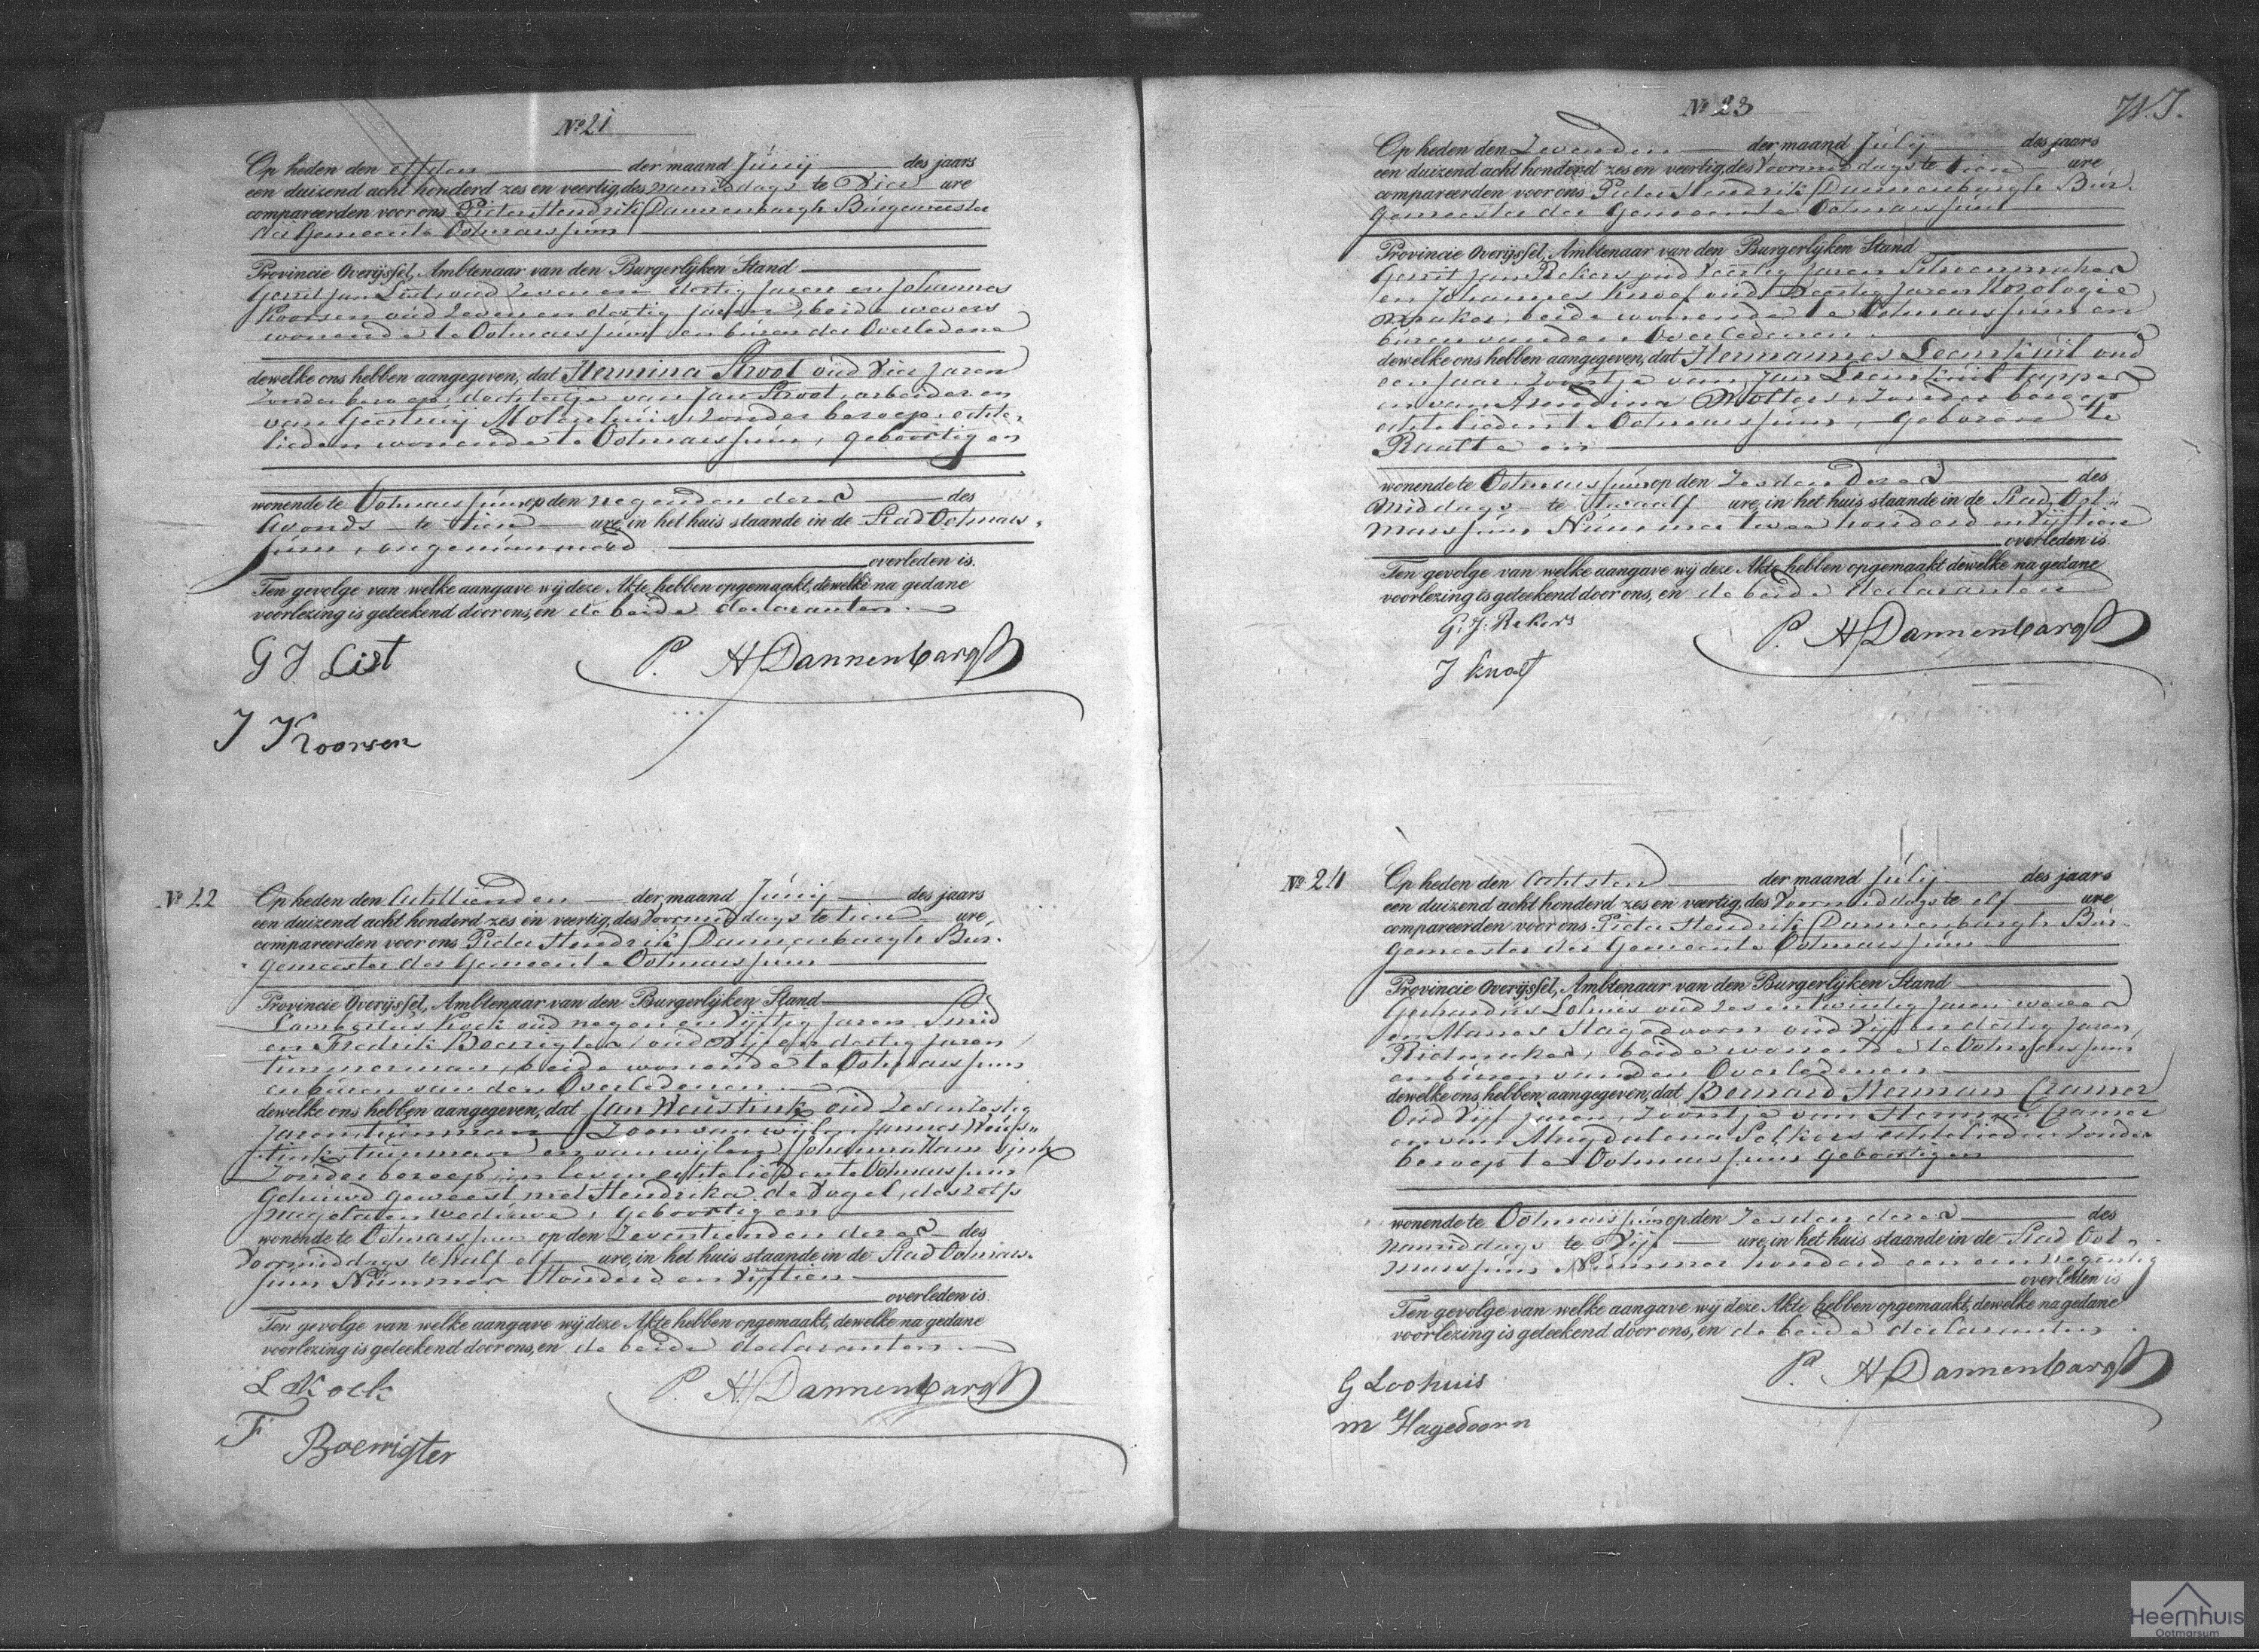 No 21
Op heden den elfden der maand Junij des jaars
een duizend acht honderd zes en veertig, des namiddags te Vier ure
compareerden voor ons Pieter Hendrik Dannenbargh Burgemeester
der Gemeente Ootmarssum
Provincie Overijssel, Ambtenaar van den Burgerlijken Stand
Gerrit Jan List oud zeven en dertig Jaren en Johannes
Koorsen oud zeven en dertig jaren, beide wevers
wonende te Ootmarssum en buren der Overledene
dewelke ons hebben aangegeven, dat Hermina Stroot oud Vier Jaren
Zonder beroep, dochtertje van Jan Stroot, arbeider en
van Geertruij Molenhuis, zonder beroep, echte,
lieden wonende te Ootmarssum, geboortig en
wonende te Ootmarssum op den negenden dezer des
Avonds te tien ure, in het huis staande in de Stad Ootmars,
sum, ongenummerd
overleden is.
Ten gevolge van welke aangave wij deze Akte hebben opgemaakt, dewelke na gedane
voorlezing is geteekend door ons, en de beide declaranten.
G J List P. H Dannenbargh
J Koorsen
No 22 Op heden den Achttienden der maand Junij des jaars
een duizend acht honderd zes en veertig, des Voormiddags te tien ure,
compareerden voor ons Pieter Hendrik Dannenbargh Bur-
gemeester der Gemeente Ootmarssum
Provincie Overijssel, Ambtenaar van den Burgerlijken Stand
Lambertus Kock oud negen en Vijftig Jaren Smid
en Fredrik Boerrigter, oud Vijf en dertig Jaren
timmerman, beide wonende te Ootmarssum
en buren van den Overledenen
dewelke ons hebben aangegeven, dat Jan Weustink oud
Jaren, tuinman Zoon van wijlen Jannes Weus-
tink, tuinman en van wijlen Johanna
Zonder beroep, in leven echtelieden te Ootmarssum
Gehuwd geweest met Hendrika de Vogel, deszelfs
nagelaten weduwe, geboortig en
wonende te Ootmarssum op den Zeventienden dezer des
Voormiddags te half elf ure, in het huis staande in de Stad Ootmars-
sum Nummer Honderd en Vijftien
overleden is.
Ten gevolge van welke aangave wij deze Akte hebben opgemaakt, dewelke na gedane
voorlezing is geteekend door ons, en de beide declaranten.
L Kock P. H. Dannenbargh
F Boerrigter
No 23
Op heden den Zevenden der maand Julij des jaars
een duizend acht honderd zes en veertig, des Voormiddags te tien ure
compareerden voor ons Pieter Hendrik Dannenbargh Bur-
gemeester der Gemeente Ootmarssum
Provincie Overijssel, Ambtenaar van den Burgerlijken Stand
Gerrit Jan Rekers oud Veertig Jaren Schoenmaker
en Johannes Knoef oud Jaren Horologie
maker, beide wonende te Ootmarssum en
buren van den Overledenen
dewelke ons hebben aangegeven, dat Hermannes Leemkuil oud
een Jaar, Zoontje van Jan Leemkuil tapper
en van Arendina Wolters, Zonder beroep
echtelieden te Ootmarssum, geboren te
Raalte en
wonende te Ootmarssum op den Zesden dezer des
middags te twaalf ure, in het huis staande in de Stad Oot-
marssum Nummer twee honderd en Vijftien
overleden is.
Ten gevolge van welke aangave wij deze Akte hebben opgemaakt dewelke na gedane
voorlezing is geteekend door ons, en de beide declaranten
G. J. Rekers P. H Dannenbargh
J Knoef
No 24 Op heden den Achtsten der maand Julij des jaars
een duizend acht honderd zes en veertig, des Voormiddags te elf ure
compareerden voor ons Pieter Hendrik Dannenbargh Bur-
gemeester der Gemeente Ootmarssum
Provincie Overijssel, Ambtenaar van den Burgerlijken Stand
Gerhardus Lohuis oud zes en twintig Jaren wever
en Manes Hagedoorn oud Vijf en dertig Jaren,
Rietmaker, beide wonende te Ootmarssum
en buren van den Overledenen
dewelke ons hebben aangegeven, dat Bernard Herman Cramer
Oud Vijf jaren, Zoontje van Herman Cramer
en van Magdalena Solkers echtelieden zonder
beroep te Ootmarssum geboortig en
wonende te Ootmarssum op den Zesden dezer des
namiddags te Vijf ure, in het huis staande in de Stad Oot-
marssum Nummer honderd een en negentig
overleden is
Ten gevolge van welke aangave wij deze Akte hebben opgemaakt, dewelke na gedane
voorlezing is geteekend door ons, en de beide declaranten.
G Loohuis P. H Dannenbargh
m Hagedoorn
Heemhuis
Ootmarsum